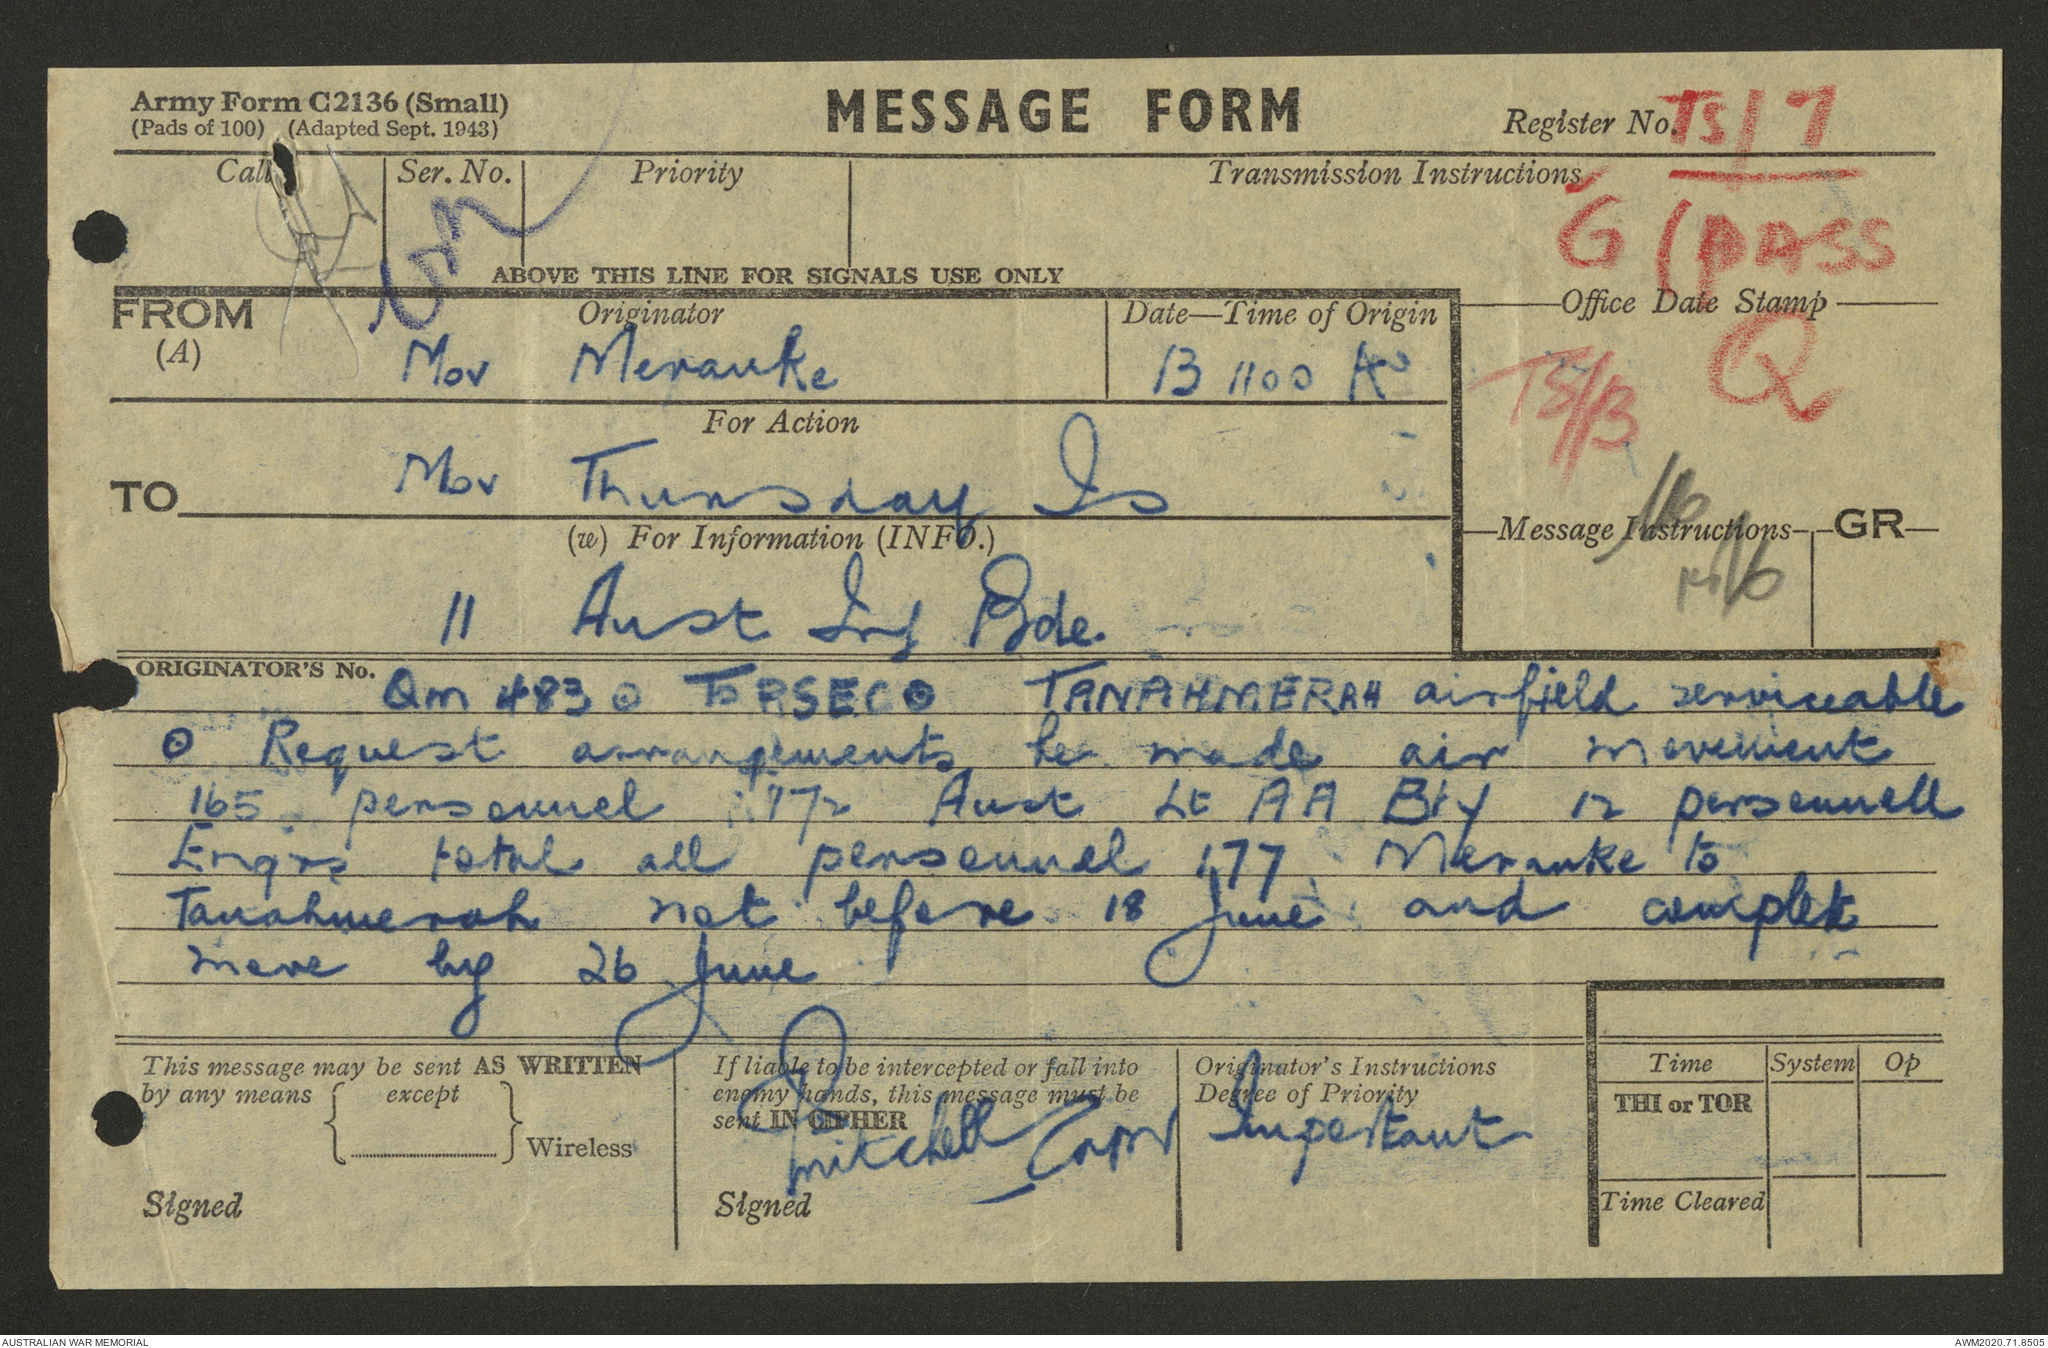 Army Form C2136 (Small)
(Pads of 100) (Adapted Sept. 1943)
MESSAGE FORM
Register No. TS/7
Call
Ser. No.
Priority
Transmission Instructions
G (PASS
ABOVE THIS LINE FOR SIGNALS USE ONLY
FROM
(A)
Originator
Date—Time of Origin
Office Date Stamp
Mov Merauke
13 1100 K
Q
TS/13
For Action
TO
Mov Thursday Is
(w) For Information (INFO.)
Message Instructions
GR
11 Aust Inf Bde.
ORIGINATOR'S No.
Qm 483 ⊙ TOPSEC ⊙ TANAHMERAH airfield serviceable
⊙ Request arrangements be made air movement
165 personnel 172 Aust Lt AA Bty 12 personnell
Engrs total all personnel 177 Merauke to
Tanahmerah not before 18 June and complete
move by 26 June
This message may be sent AS WRITTEN
by any means except
Wireless
Signed
If liable to be intercepted or fall into
enemy hands, this message must be
sent IN CIPHER
Mitchell Capt
Signed
Originator's Instructions
Degree of Priority
Important
Time System Op
THI or TOR
Time Cleared
AUSTRALIAN WAR MEMORIAL
AWM2020.71.8505